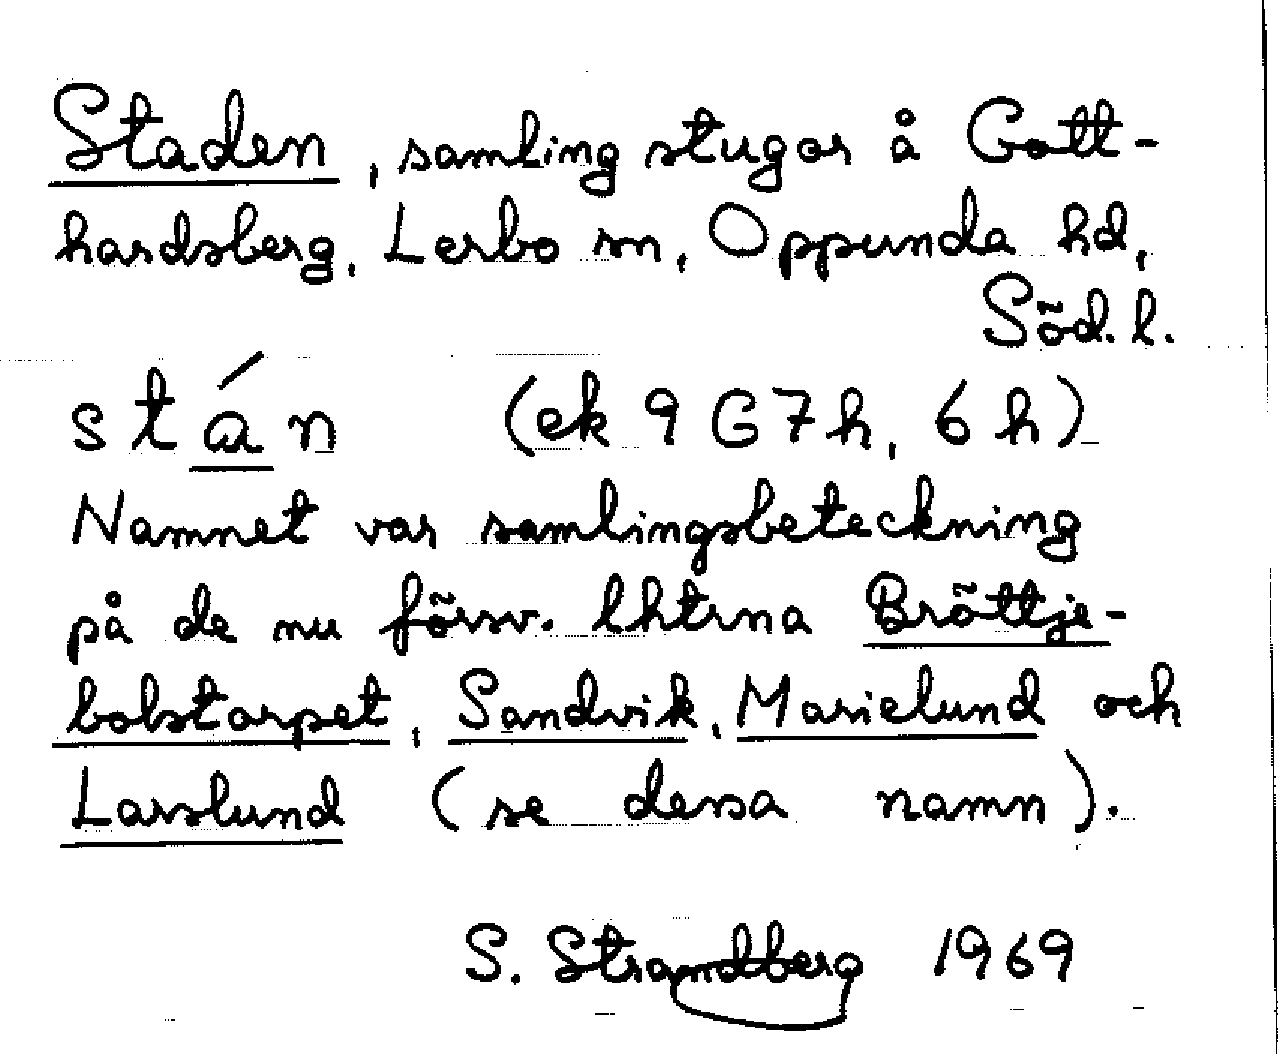 Staden, samling stugor å Gott-
hardsberg, Lerbo sn, Oppunda hd,
Söd.l.
stán (ek 9G7h, 6h)
Namnet var samlingsbeteckning
på de nu försv. lhtrna Bröttje-
bolstorpet, Sandvik, Marielund och
Larslund (se dessa namn).
S. Strandberg 1969